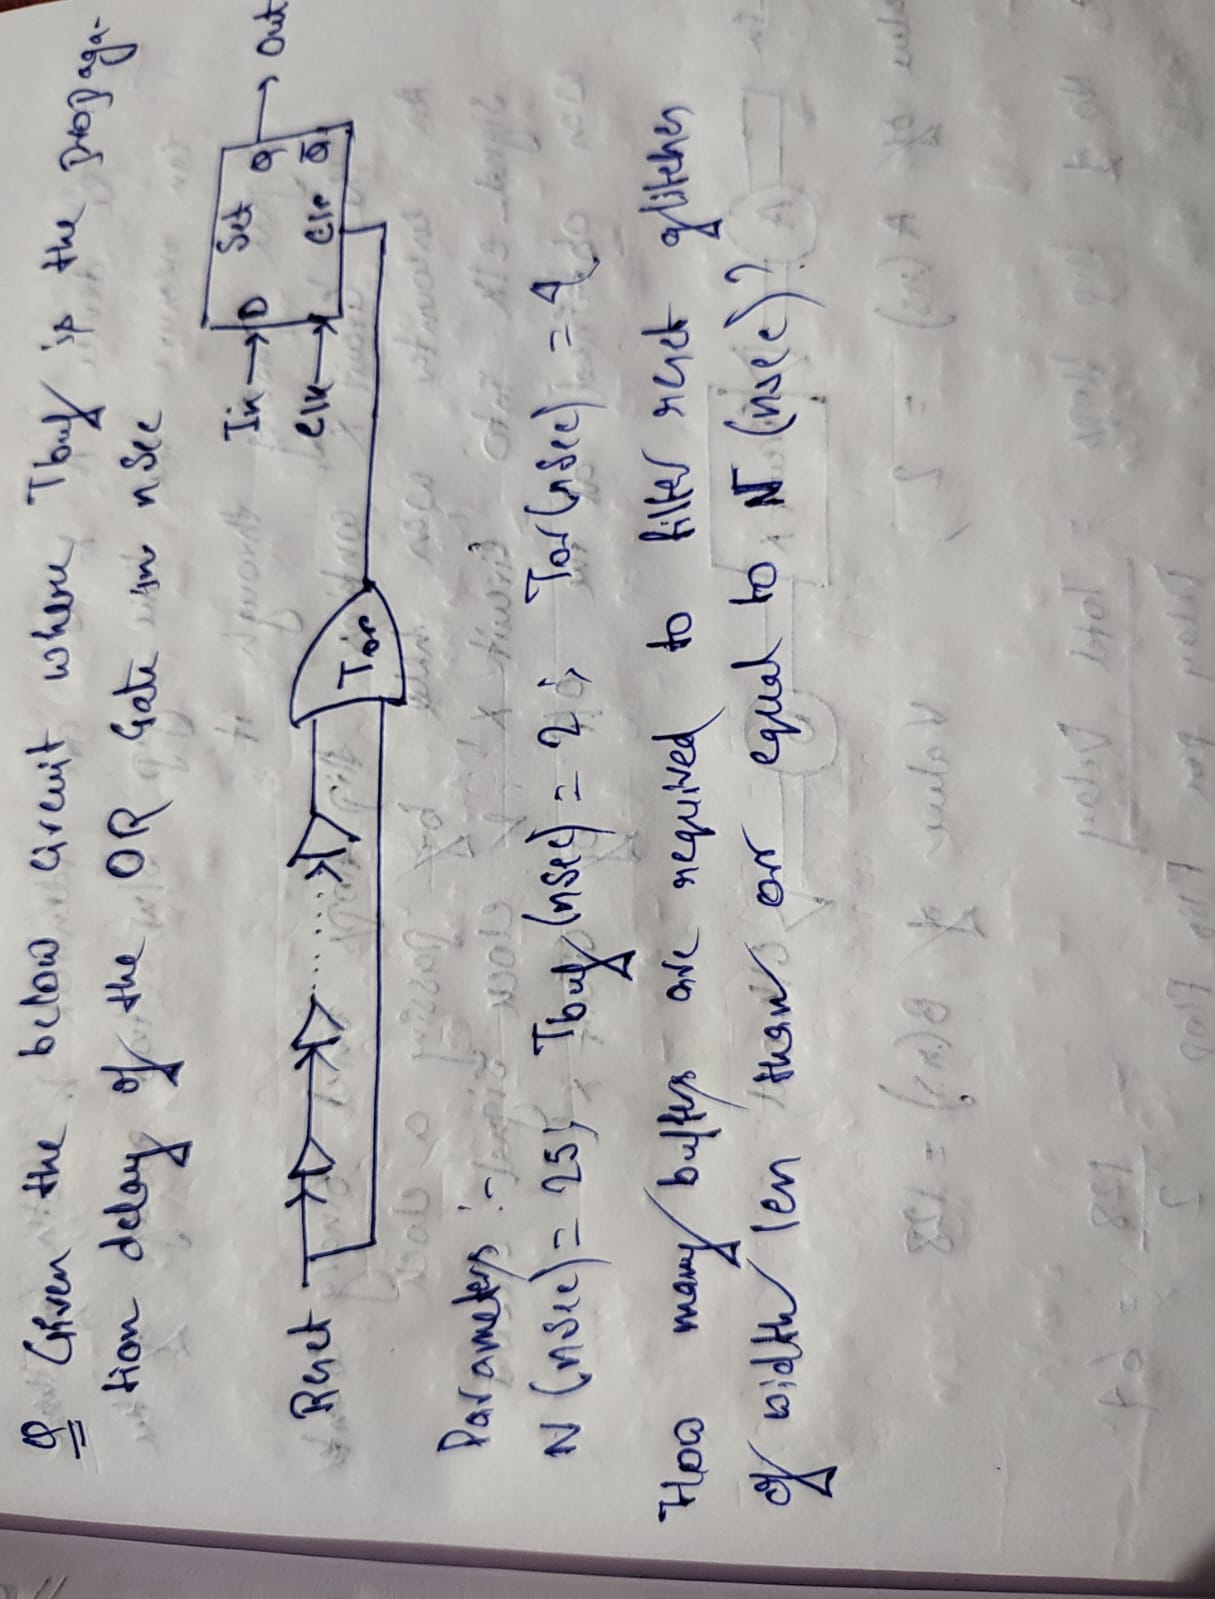 Q Given the below circuit where, Tbuf is the propaga-
tion delay of the OR Gate in nsec
In → D Set Q → Out
Clk → Clr Q̅
Reset
Tor
Parameters :-
N (nsec) = 25; Tbuf (nsec) = 2; Tor (nsec) = 4
How many buffers are required to filter reset glitches
of width less than or equal to N (nsec)?